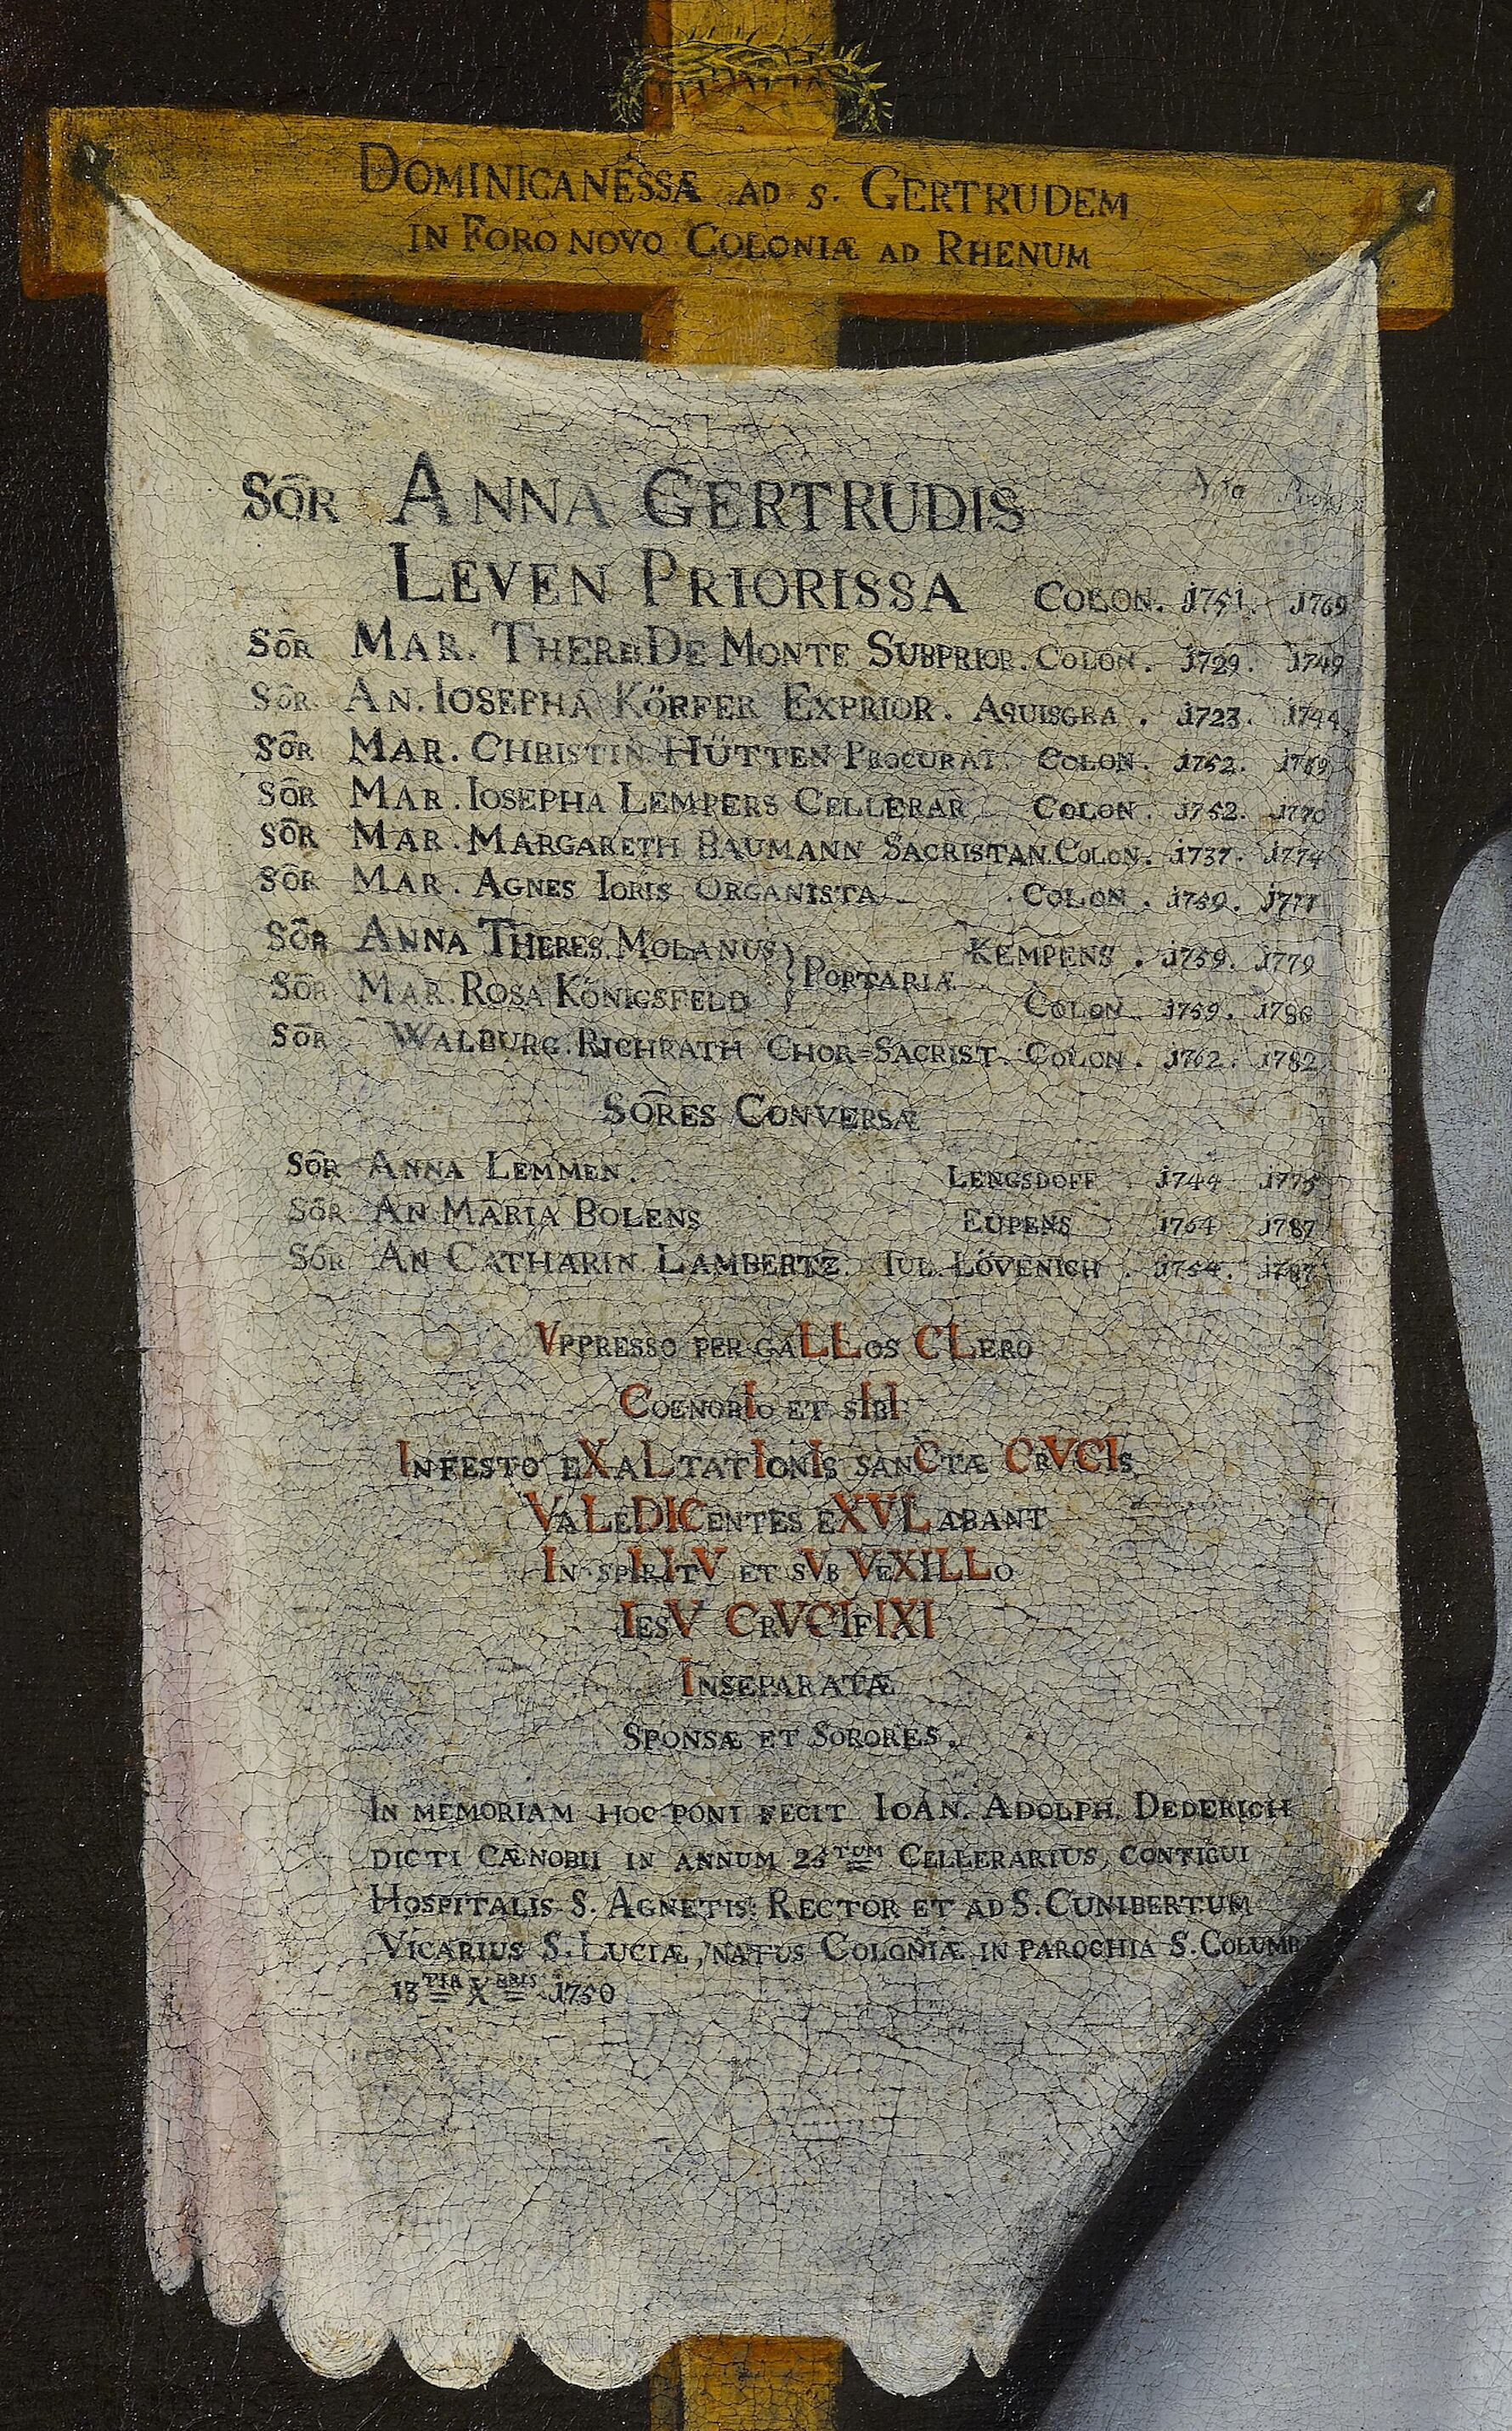 DOMINICANESSÆ AD S. GERTRUDEM
IN FORO NOVO COLONIÆ AD RHENUM
SÔR ANNA GERTRUDIS
LEVEN PRIORISSA COLON. 1751. 1769
SÔR MAR. THERES. DE MONTE SUBPRIOR. COLON. 1729. 1749
SÔR. AN. IOSEPHA KÖRFER EXPRIOR. AQUISGRA. 1723. 1744
SÔR MAR. CHRISTIN. HÜTTEN PROCURAT. COLON. 1752. 1769
SÔR MAR. IOSEPHA LEMPERS CELLERAR COLON. 1752. 1770
SÔR MAR. MARGARETH BAUMANN SACRISTAN. COLON. 1737. 1774
SÔR MAR. AGNES IORIS ORGANISTA. COLON. 1759. 1777
SÔR ANNA THERES. MOLANUS } PORTARIÆ KEMPENS. 1759. 1779
SÔR MAR. ROSA KÖNIGSFELD COLON 1759. 1780
SÔR WALBURG. RICHRATH CHOR=SACRIST. COLON. 1762. 1782
SÔRES CONVERSÆ
SÔR ANNA LEMMEN. LENGSDOFF 1744 1775
SÔR AN MARIA BOLENS EUPENS 1764 1787
SÔR AN CATHARIN. LAMBERTZ. IUL. LÖVENICH. 1754. 1787
VPPRESSO PER GALLOS CLERO
COENOBIO ET SIBI
IN FESTO EXALTATIONIS SANCTÆ CRVCIS
VALEDICENTES EXVLABANT
IN SPIRITV ET SVB VEXILLO
IESV CRVCIFIXI
INSEPARATÆ
SPONSÆ ET SORORES.
IN MEMORIAM HOC PONI FECIT IOAN. ADOLPH. DEDERICH
DICTI CÆNOBII IN ANNUM 23TUM CELLERARIUS, CONTIGUI
HOSPITALIS S. AGNETIS: RECTOR ET AD S. CUNIBERTUM
VICARIUS S. LUCIÆ, NATUS COLONIÆ IN PAROCHIA S. COLUMB
13TIA XBRIS 1750